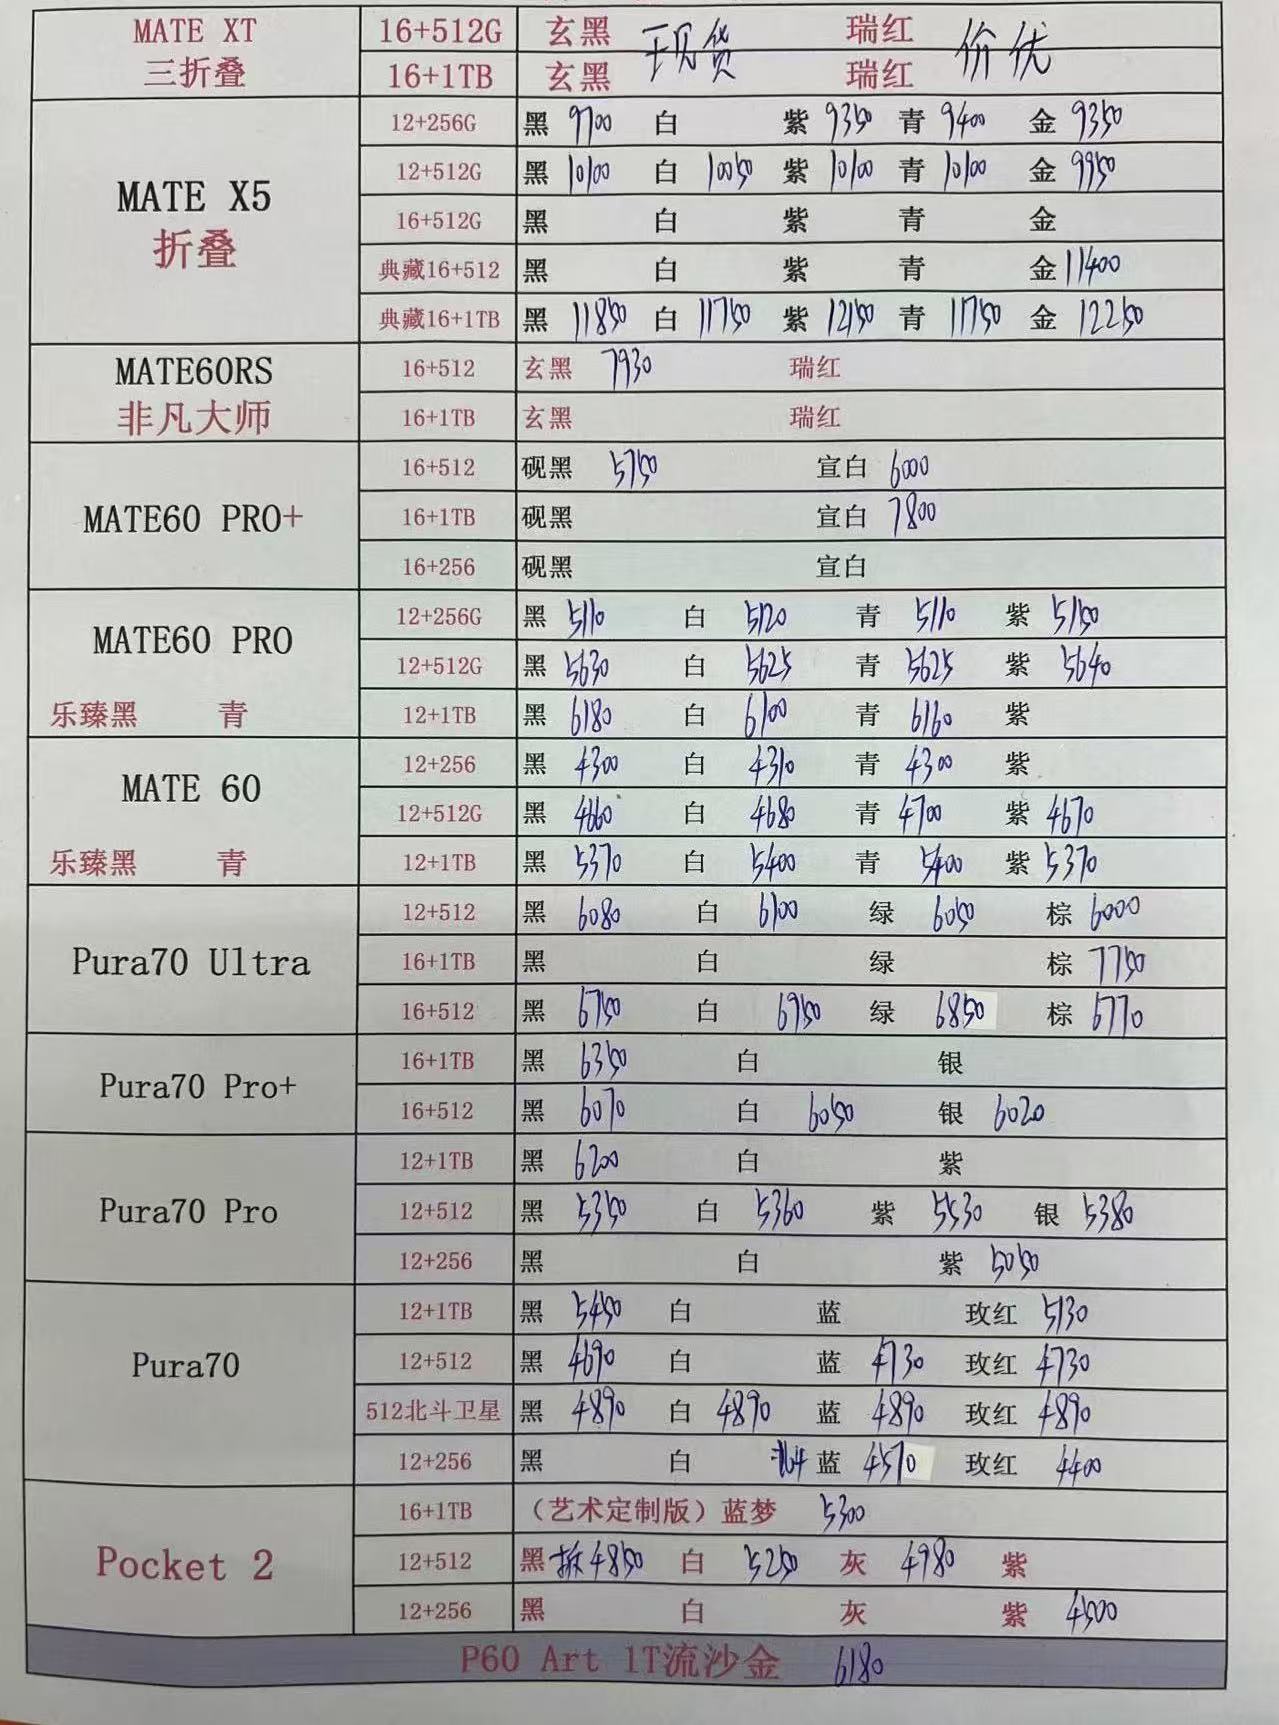 MATE XT 16+512G 玄黑 现货 瑞红 价优
三折叠 16+1TB 玄黑 瑞红
12+256G 黑 9700 白 紫 9350 青 9400 金 9350
MATE X5 12+512G 黑 10100 白 10050 紫 10100 青 10100 金 9950
折叠 16+512G 黑 白 紫 青 金
典藏16+512 黑 白 紫 青 金 11400
典藏16+1TB 黑 11850 白 11750 紫 12150 青 11750 金 12250
MATE60RS 16+512 玄黑 7930 瑞红
非凡大师 16+1TB 玄黑 瑞红
16+512 砚黑 5750 宣白 6000
MATE60 PRO+ 16+1TB 砚黑 宣白 7800
16+256 砚黑 宣白
12+256G 黑 5110 白 5120 青 5110 紫 5150
MATE60 PRO 12+512G 黑 5630 白 5625 青 5625 紫 5640
乐臻黑 青 12+1TB 黑 6180 白 6100 青 6160 紫
12+256 黑 4300 白 4310 青 4300 紫
MATE 60 12+512G 黑 4660 白 4680 青 4700 紫 4670
乐臻黑 青 12+1TB 黑 5370 白 5400 青 5400 紫 5370
12+512 黑 6080 白 6100 绿 6050 棕 6000
Pura70 Ultra 16+1TB 黑 白 绿 棕 7750
16+512 黑 6750 白 6950 绿 6850 棕 6770
Pura70 Pro+ 16+1TB 黑 6350 白 银
16+512 黑 6070 白 6050 银 6020
12+1TB 黑 6200 白 紫
Pura70 Pro 12+512 黑 5350 白 5360 紫 5530 银 5380
12+256 黑 白 紫 5050
12+1TB 黑 5450 白 蓝 玫红 5130
Pura70 12+512 黑 4690 白 蓝 4730 玫红 4730
512北斗卫星 黑 4890 白 4890 蓝 4890 玫红 4890
12+256 黑 白 蓝 4570 玫红 4400
16+1TB （艺术定制版）蓝梦 5300
Pocket 2 12+512 黑 拆4850 白 5250 灰 4980 紫
12+256 黑 白 灰 紫 4500
P60 Art 1T流沙金 6180